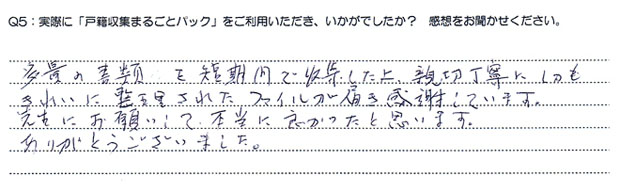 Q5：実際に「戸籍収集まるごとパック」をご利用いただき、いかがでしたか？ 感想をお聞かせください。
多量の書類 を短期間で収集した上、親切丁寧にしかも
きれいに整理されたファイルが届き感謝しています。
先生にお願いして、本当に良かったと思います。
ありがとうございました。